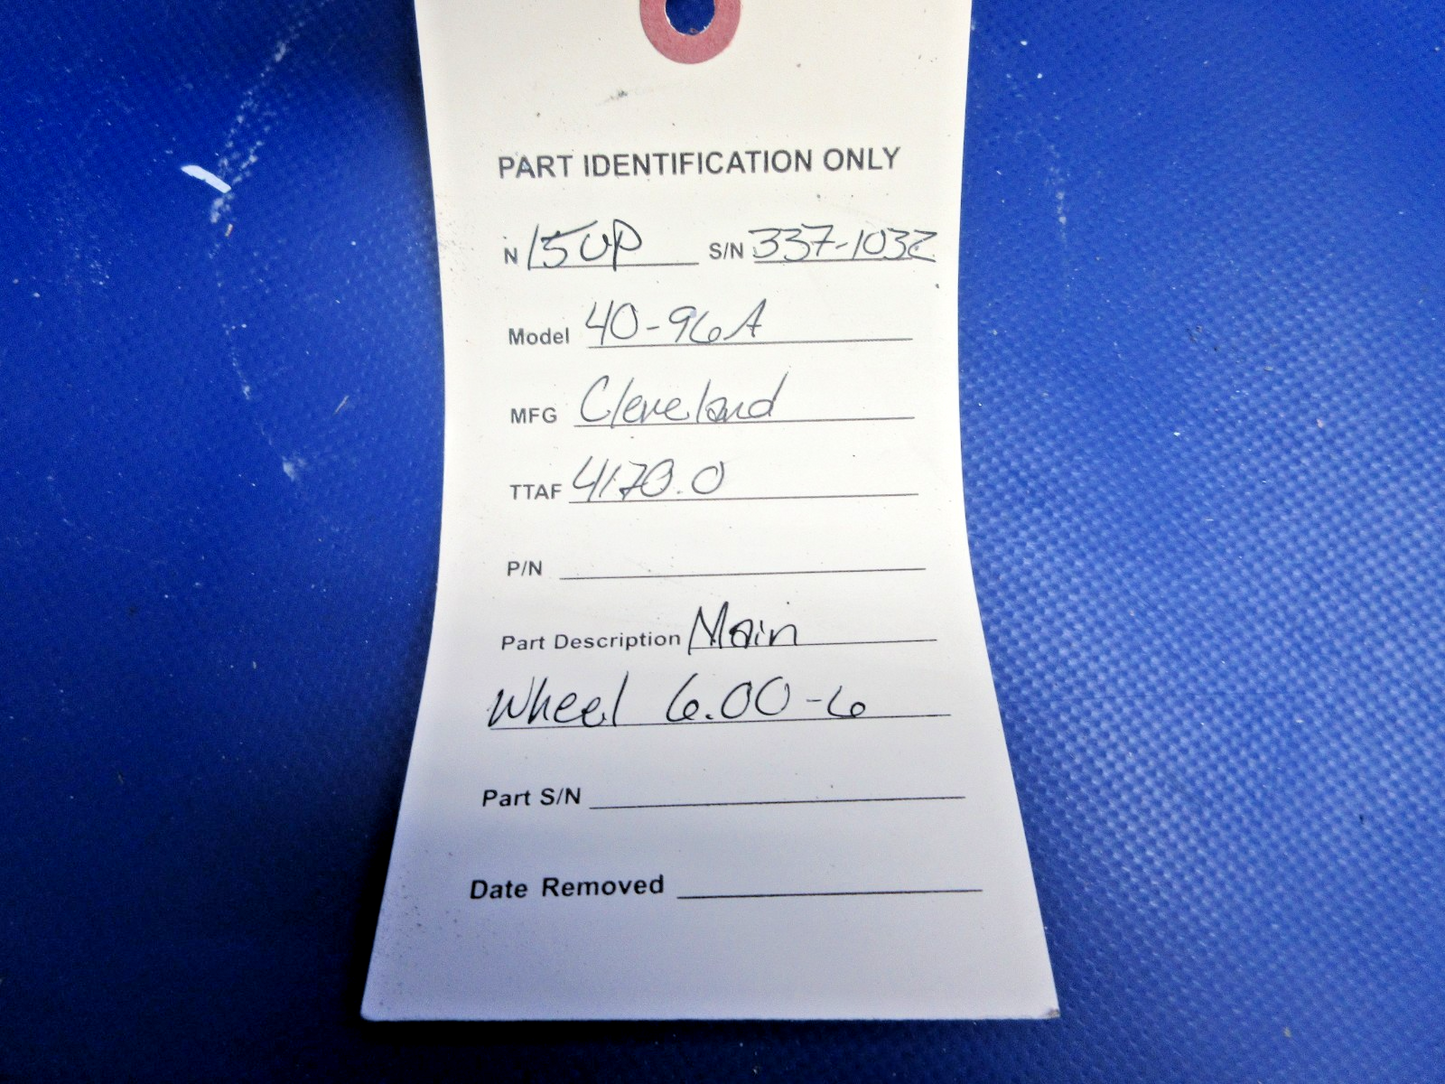 PART IDENTIFICATION ONLY
N 150P S/N 337-1032
Model 40-96A
MFG Cleveland
TTAF 4170.0
P/N
Part Description Main
Wheel 6.00-6
Part S/N
Date Removed